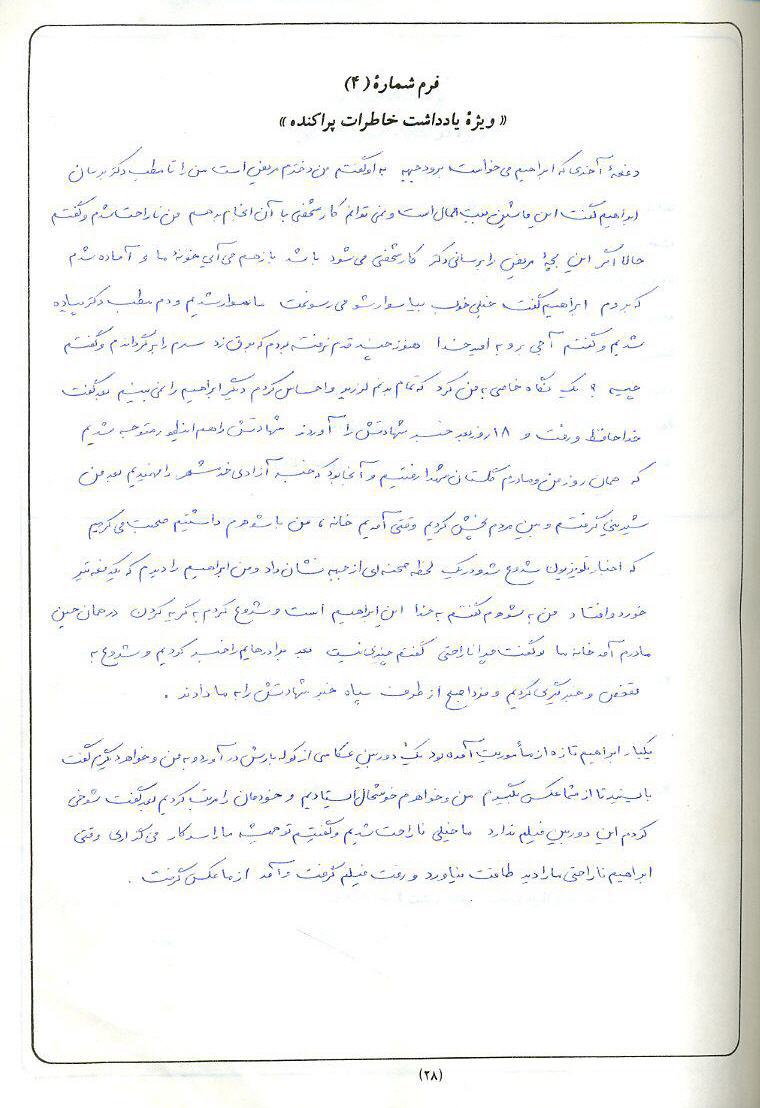 فرم شمارهٔ (۴)
« ویژهٔ یادداشت خاطرات پراکنده »
دفعهٔ آخری که ابراهیم می خواست برود جبهه به او گفتم من دخترم مریض است من را تا مطب دکتر برسان
ابراهیم گفت این ماشین بیت المال است و نمی توانم کار شخصی با آن انجام بدهم من ناراحت شدم و گفتم
حالا اگر این بچهٔ مریض را برسانی دکتر کار شخصی می شود باشد باز هم می آیی خونهٔ ما و آماده شدم
که بروم ابراهیم گفت خیلی خوب بیا سوار شو می رسونمت ما سوار شدیم و دم مطب دکتر پیاده
شدیم و گفتم آجی برو به امید خدا هنوز چند قدم نرفته بودم که بوق زد سرم را برگرداندم و گفتم
چیه ؟ یک نگاه خاصی به من کرد که تمام بدنم لرزید و احساس کردم دیگر ابراهیم را نمی بینم بعد گفت
خداحافظ و رفت و ۱۸ روز بعد خبر شهادتش را آوردند شهادتش را هم اینطور متوجه شدیم
که همان روز من و مادرم گلستان شهدا رفتیم و آنجا بود که خبر آزادی خرمشهر را فهمیدیم بعد من
شیرینی گرفتم و بین مردم پخش کردیم وقتی آمدیم خانه ، من با شوهرم داشتیم صحبت می کردیم
که اخبار تلویزیون شروع شد و در یک لحظه صحنه ای از جبهه نشان داد و من ابراهیم را دیدم که یک دفعه تیر
خورد و افتاد من به شوهرم گفتم به خدا این ابراهیم است و شروع کردم به گریه کردن در همان حین
مادرم آمد خانه ما و گفت چرا ناراحتی گفتم چیزی نیست بعد برادرهایم را خبر کردیم و شروع به
تفحص و خبرگیری کردیم و فردا صبح از طرف سپاه خبر شهادتش را به ما دادند .
یکبار ابراهیم تازه از مأموریت آمده بود یک دوربین عکاسی از کوله بارش در آورد و به من و خواهر دیگرم گفت
بایستید تا از شما عکس بگیرم من و خواهرم خوشحال ایستادیم و خودمان را مرتب کردیم بعد گفت شوخی
کردم این دوربین فیلم ندارد ما خیلی ناراحت شدیم و گفتیم تو همیشه ما را سر کار می گذاری وقتی
ابراهیم ناراحتی ما را دید طاقت نیاورد و رفت فیلم گرفت و آمد از ما عکس گرفت .
(۲۸)